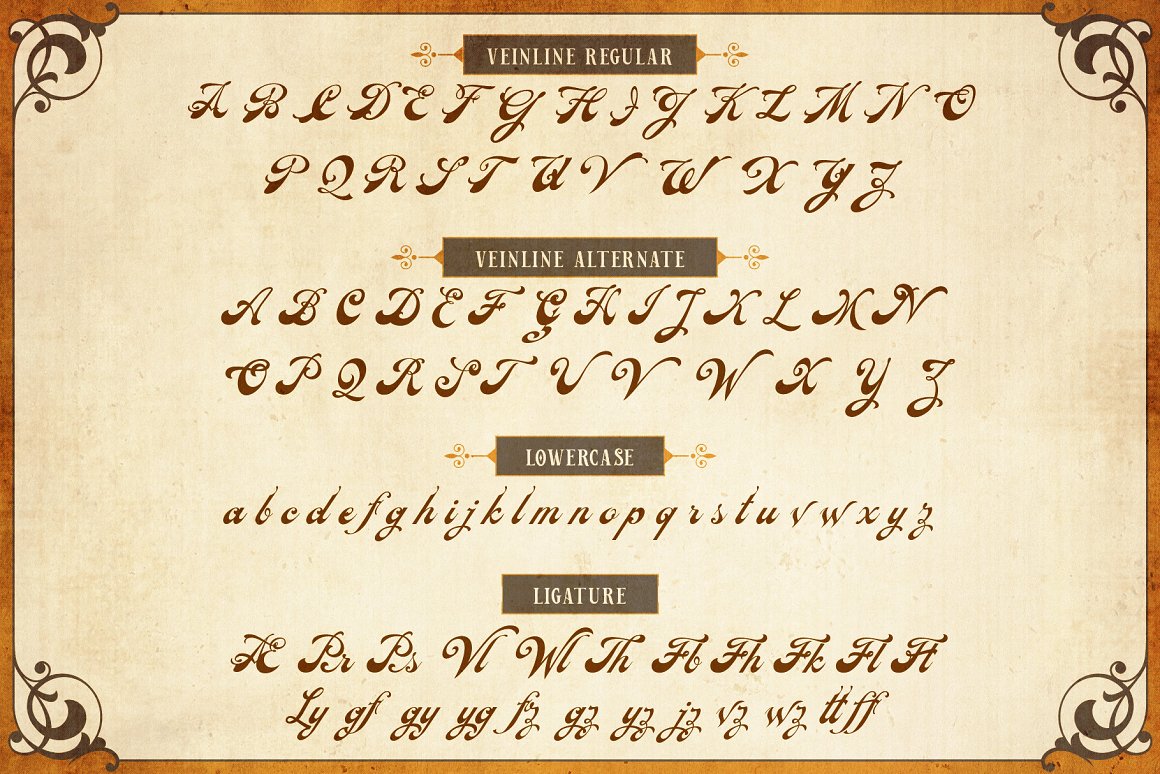 VEINLINE REGULAR
A B C D E F G H I J K L M N O
P Q R S T U V W X Y Z
VEINLINE ALTERNATE
A B C D E F G H I J K L M N
O P Q R S T U V W X Y Z
LOWERCASE
a b c d e f g h i j k l m n o p q r s t u v w x y z
LIGATURE
Æ Pr Ps Vl Wl Th Fb Fh Fk Fl Ff
Ly gf gy yg fz gz yz jz vz wz tt ff